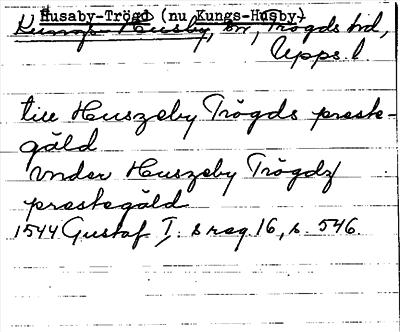 Husaby-Trögd (nu Kungs-Husby)
Kungs-Husby, sn, Trögds hd,
Upps. l.
till Huszeby Trögds preste-
gäld
Vnder Huszeby Trögdz
prestegäld
1544 Gustaf I. s reg. 16, s. 546.